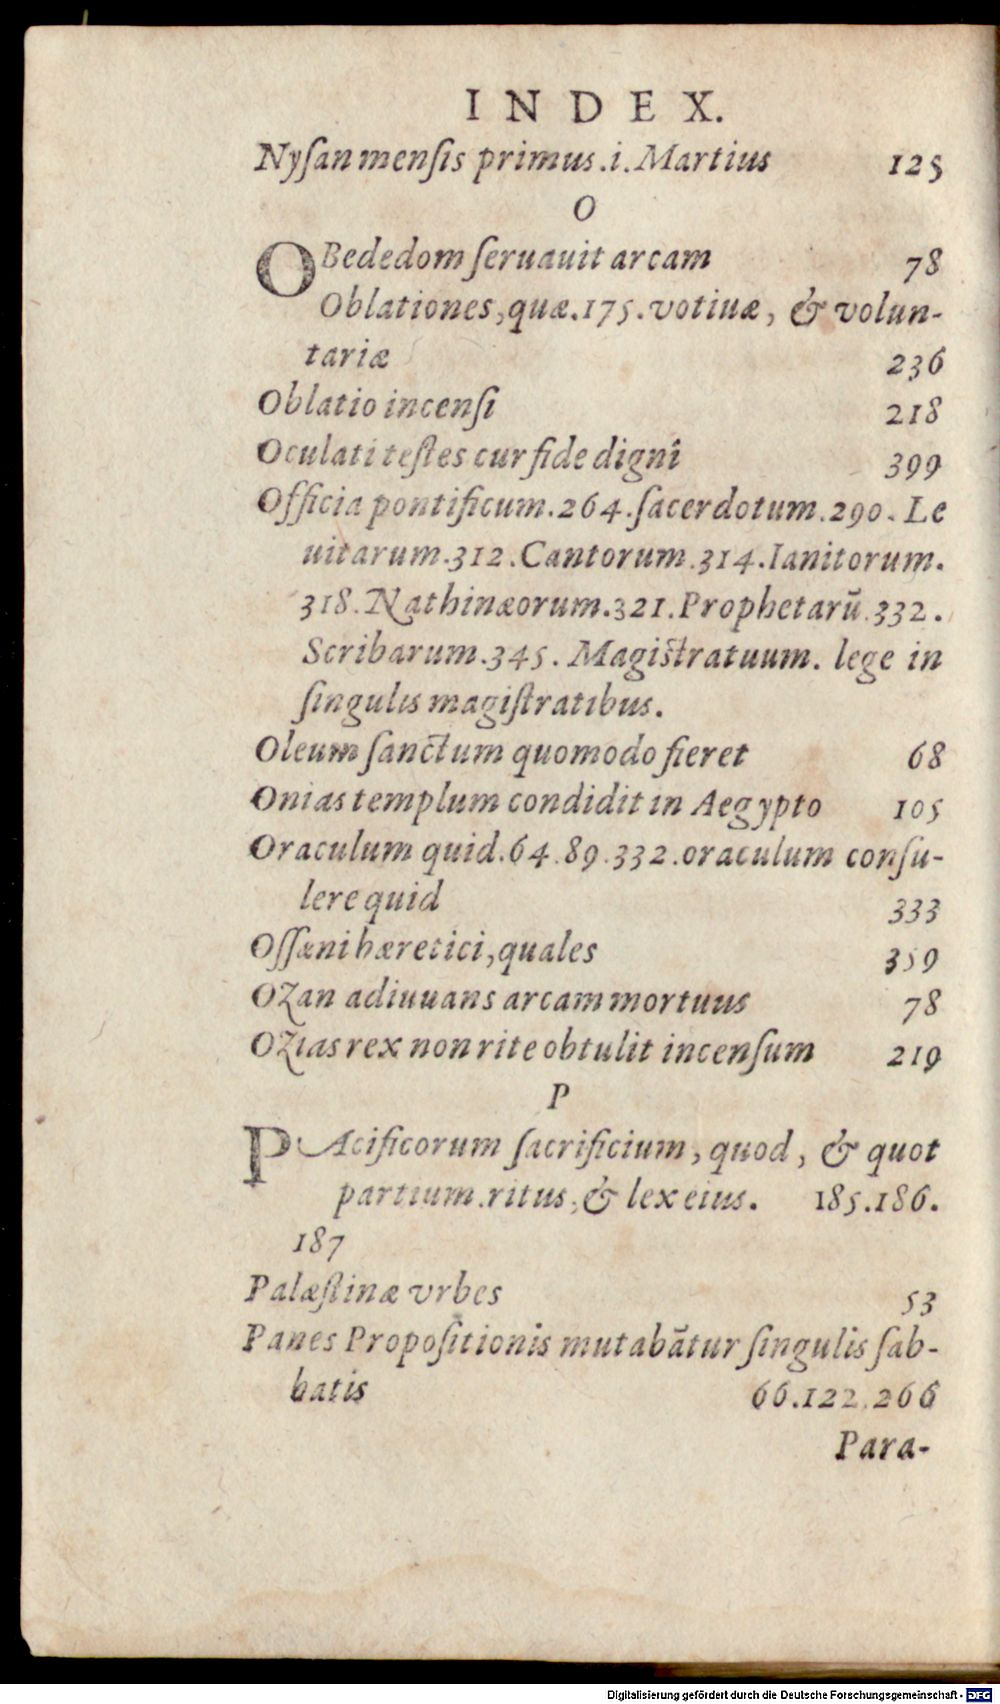 INDEX.
Nyſan menſis primus .i. Martius 125
O
OBededom ſeruauit arcam 78
Oblationes, quæ. 175. votiuæ, & volun-
tariæ 236
Oblatio incenſi 218
Oculati teſtes cur fide digni 399
Officia pontificum. 264. ſacerdotum. 290. Le
uitarum. 312. Cantorum. 314. Ianitorum.
318. Nathinæorum. 321. Prophetarũ. 332.
Scribarum. 345. Magiſtratuum. lege in
ſingulis magiſtratibus.
Oleum ſanctum quomodo fieret 68
Onias templum condidit in Aegypto 105
Oraculum quid. 64. 89. 332. oraculum conſu-
lere quid 333
Oſſæni hæretici, quales 359
Ozan adiuuans arcam mortuus 78
Ozias rex non rite obtulit incenſum 219
P
PAcificorum ſacrificium, quod, & quot
partium. ritus, & lex eius. 185. 186.
187
Palæſtinæ vrbes 53
Panes Propoſitionis mutabãtur ſingulis ſab-
batis 66. 122. 266
Para-
Digitalisierung gefördert durch die Deutsche Forschungsgemeinschaft - DFG